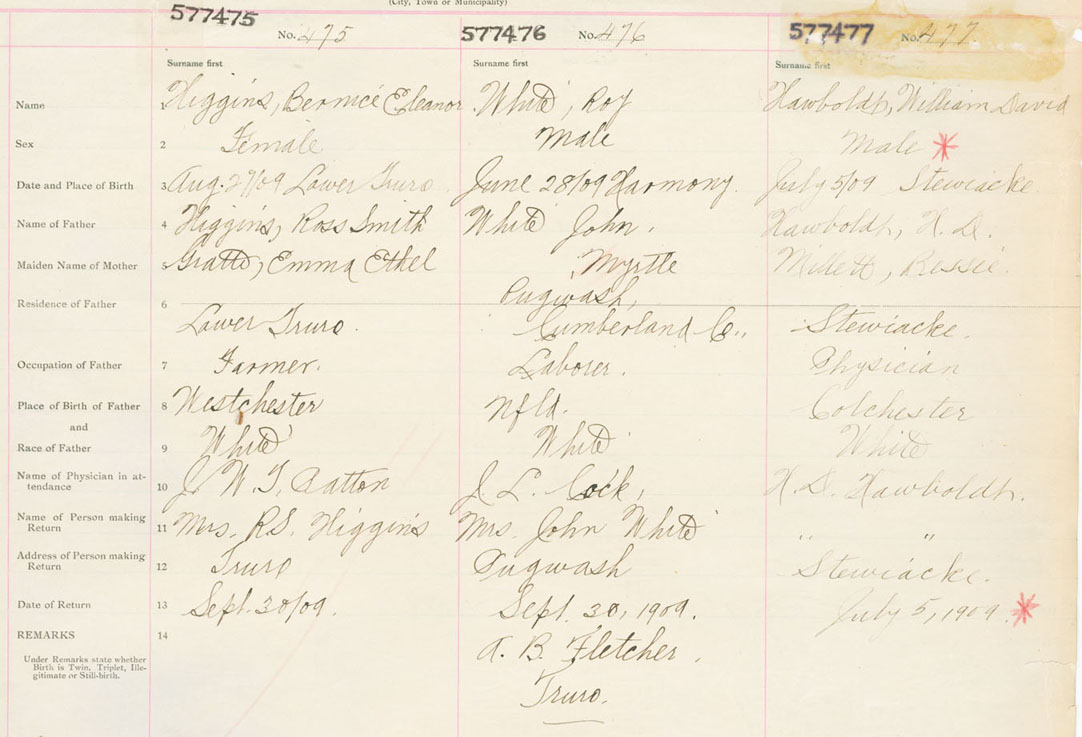 (City, Town or Municipality)
577475 No. 475 577476 No. 476 577477 No. 477
Surname first Surname first Surname first
Name 1 Higgins, Bernice Eleanor White, Roy Hawboldt, William David
Sex 2 Female Male Male *
Date and Place of Birth 3 Aug. 27/09 Lower Truro. June 28/09 Harmony. July 5/09 Stewiacke
Name of Father 4 Higgins, Ross Smith White John. Hawboldt, H. D.
Maiden Name of Mother 5 Gratto, Emma Ethel , Myrtle Millett, Bessie.
Residence of Father 6 Pugwash,
Lower Truro. Cumberland Co., Stewiacke.
Occupation of Father 7 Farmer. Laborer. Physician
Place of Birth of Father 8 Westchester Nfld. Colchester
and
Race of Father 9 White White White
Name of Physician in at-
tendance 10 J. W. T. Patton J. L. Cock, H. D. Hawboldt.
Name of Person making
Return 11 Mrs. R.S. Higgins Mrs. John White " "
Address of Person making
Return 12 Truro Pugwash Stewiacke.
Date of Return 13 Sept. 30/09. Sept. 30, 1909. July 5, 1909. *
REMARKS 14 A. B. Fletcher,
Under Remarks state whether
Birth is Twin, Triplet, Ille-
gitimate or Still-birth.
Truro.